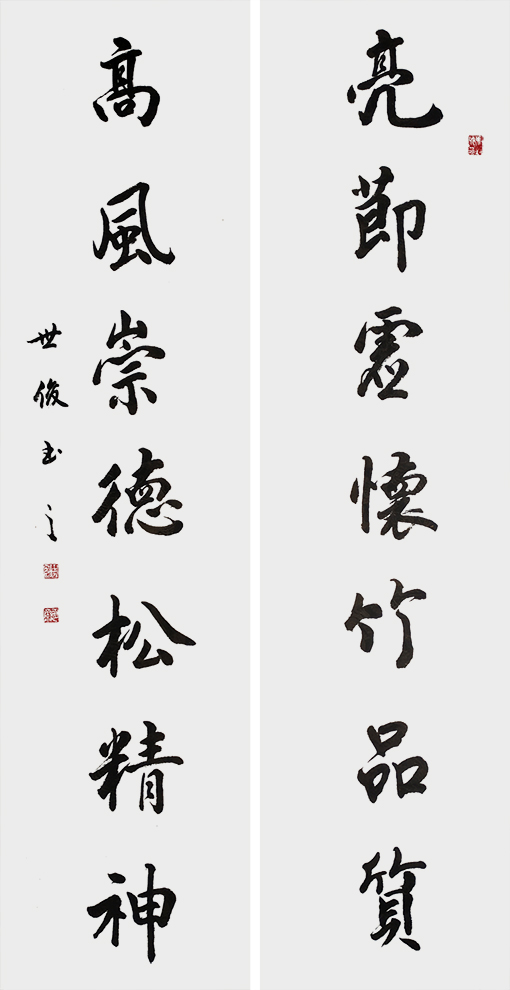 亮節虛懷竹品質
高風崇德松精神
世俊書